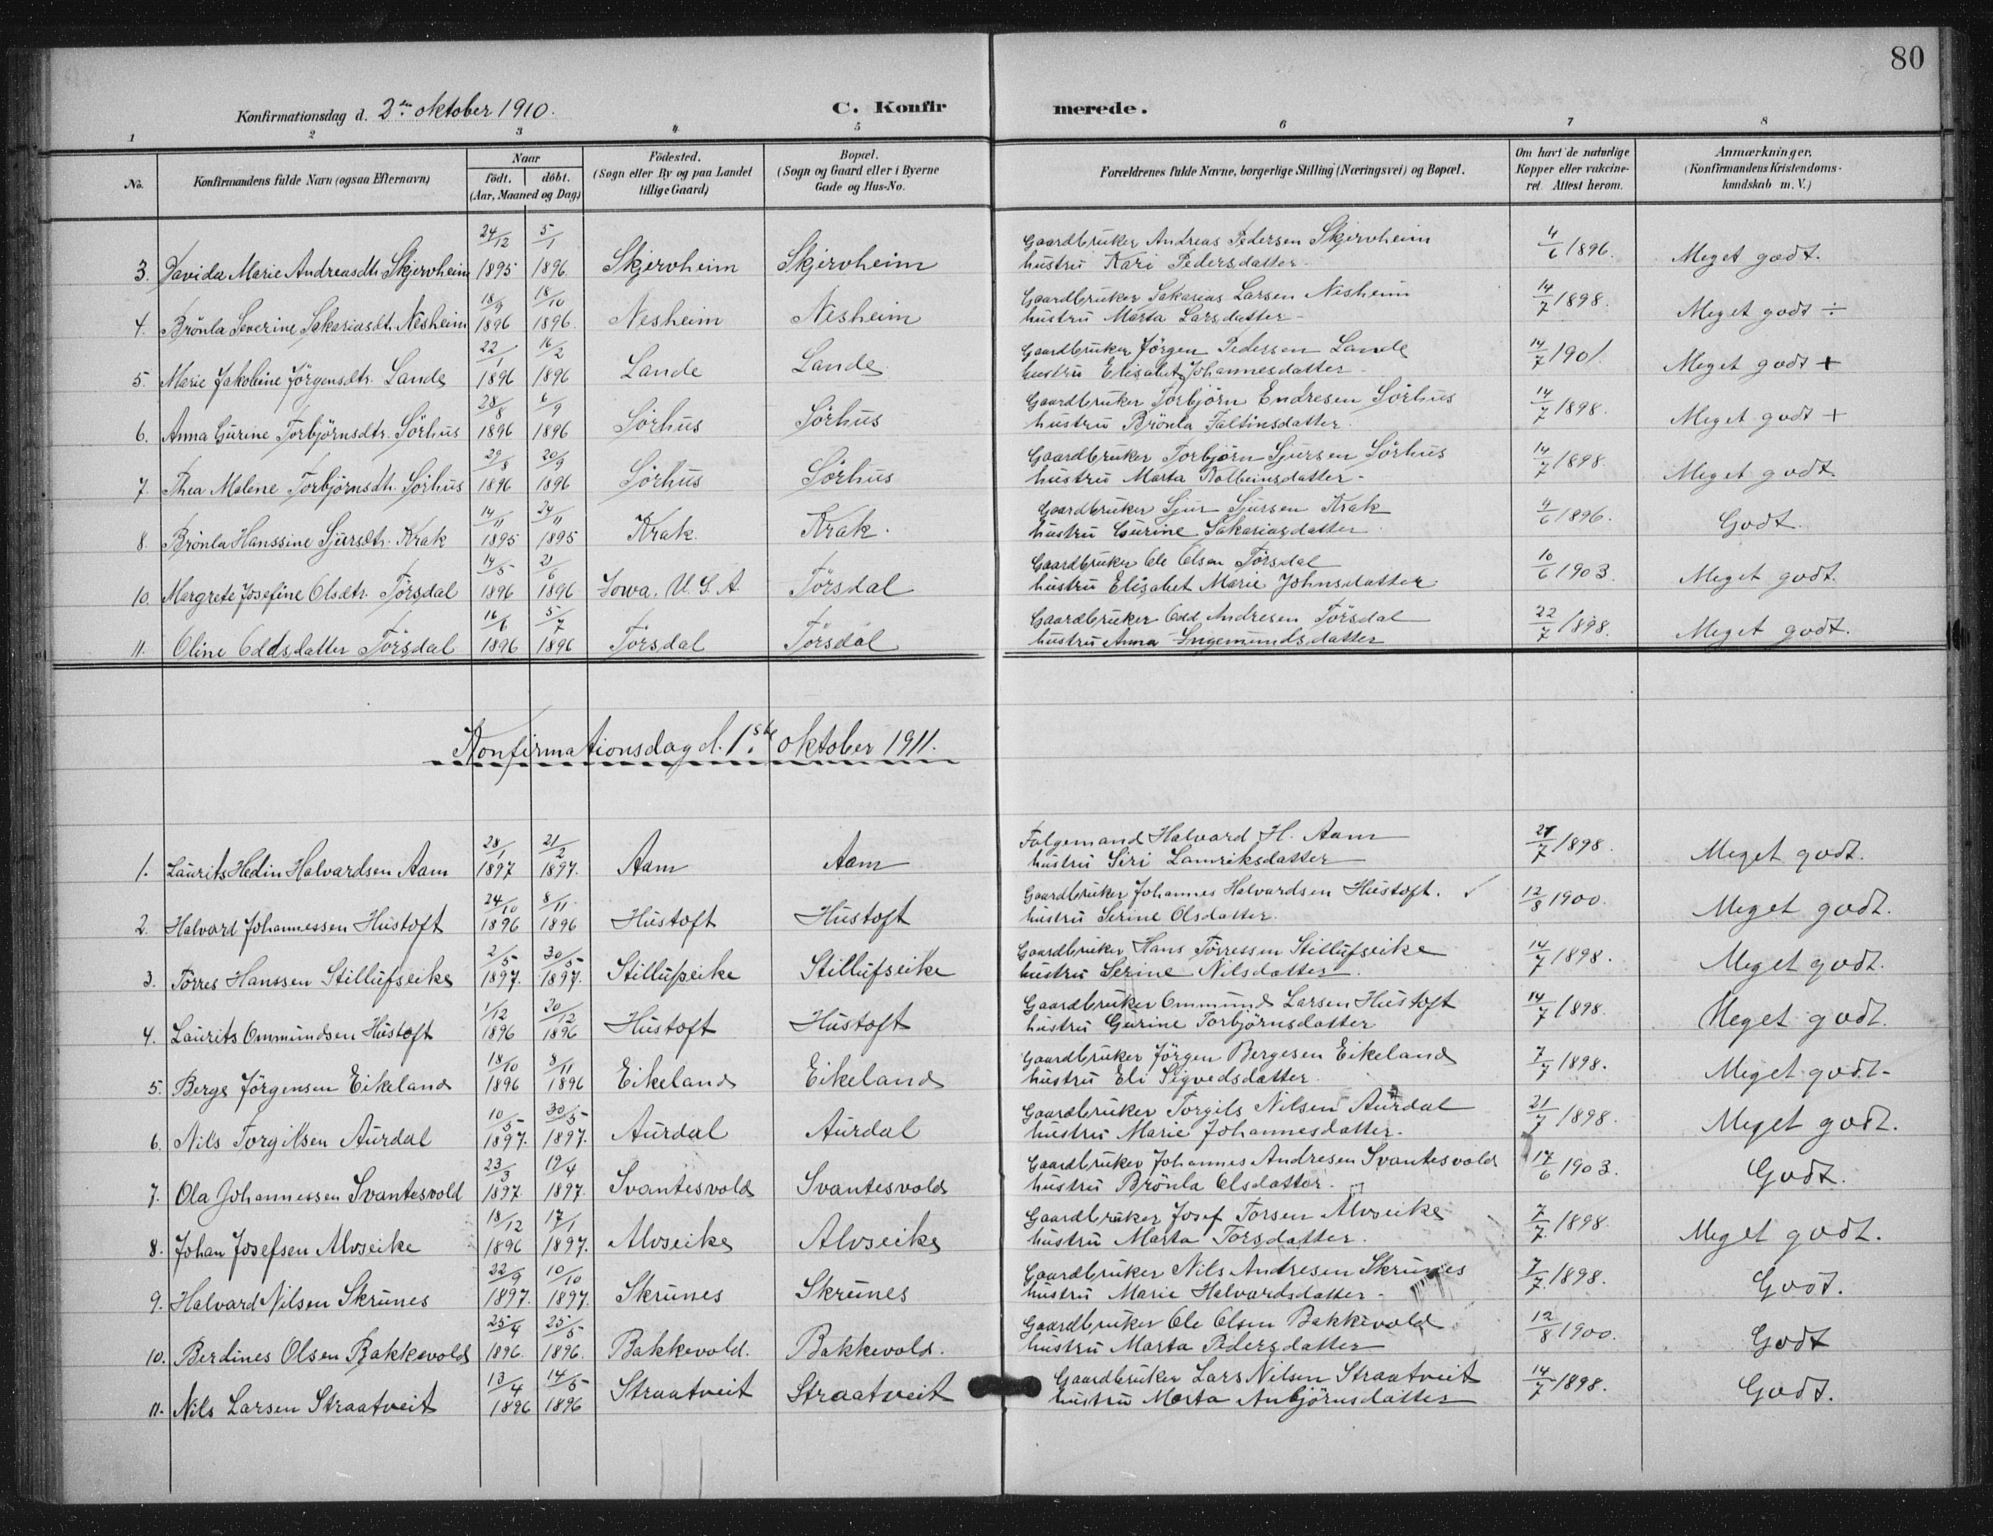 80
Konfirmationsdag d. 2den oktober 1910. C. Konfirmerede.
1 2 3 4 5 6 7 8
No. Konfirmandens fulde Navn (ogsaa Efternavn) Naar födt. döbt. (Aar, Maaned og Dag) Födested. (Sogn eller By og paa Landet tillige Gaard) Bopæl. (Sogn og Gaard eller i Byerne Gade og Hus-No. Forældrenes fulde Navne, borgerlige Stilling (Næringsvei) og Bopæl. Om havt de naturlige Kopper eller vakcineret. Attest herom. Anmærkninger. (Konfirmandens Kristendomskundskab m. V.)
24/12 5/1 Gaardbruker Andreas Pedersen Skjervheim
3. Davida Marie Andreasdtr. Skjervheim 1895 1896 Skjervheim Skjervheim hustru Kari Pedersdatter 4/6 1896. Meget godt.
18/9 18/10 Gaardbruker Sakarias Larsen Nesheim
4. Brönla Severine Sakariasdtr. Nesheim 1896 1896. Nesheim Nesheim hustru Marta Larsdatter 14/7 1898. Meget godt ÷
22/1 16/2 Gaardbruker Jörgen Pedersen Lande
5. Marie Jakobine Jörgensdtr. Lande 1896 1896 Lande Lande hustru Elisabet Johannesdatter 14/7 1901. Meget godt +
28/8 6/9 Gaardbruker Torbjörn Endresen Sörhus
6. Anna Gurine Torbjörnsdtr. Sörhus 1896 1896 Sörhus Sörhus hustru Brönla Faltinsdatter 14/7 1898. Meget godt +
29/8 20/9 Gaardbruker Torbjörn Sjursen Sörhus
7. Thea Malene Torbjörnsdtr. Sörhus 1896 1896 Sörhus Sörhus hustru Marta Kolbeinsdatter 14/7 1898 Meget godt
14/11 24/11 Gaardbruker Sjur Sjursen Krak
8. Brönla Hanssine Sjursdtr. Krak 1895 1895 Krak Krak. hustru Gurine Sakariasdatter 4/6 1896. Godt.
14/5 21/6 Gaardbruker Ole Olsen Törsdal
10. Margrete Josefine Olsdtr. Törsdal 1896 1896 Iowa. U.S.A. Törsdal hustru Elisabet Marie Johnsdatter 10/6 1903. Meget godt.
16/6 5/7 Gaardbruker Odd Andresen Törsdal
11. Oline Oddsdatter Törsdal 1896 1896 Törsdal Törsdal hustru Anna Ingemundsdatter 22/7 1898. Meget godt.
Konfirmationsdag d. 1ste oktober 1911.
28/1 21/2 Folgemand Halvard H. Aam
1. Laurits Hedin Halvardsen Aam 1897 1897. Aam Aam hustru Siri Lauriksdatter 21/7 1898. Meget godt.
24/10 8/11 Gaardbruker Johannes Halvardsen Hustoft.
2. Halvard Johannessen Hustoft 1896 1896 Hustoft Hustoft hustru Serine Olsdatter. 12/8 1900. Meget godt.
2/5 30/5 Gaardbruker Hans Törressen Stillufseike
3. Törres Hanssen Stillufseike 1897. 1897. Stillufseike Stillufseike hustru Serine Nilsdatter. 14/7 1898. Meget godt.
1/12 20/12 Gaardbruker Ommund Larsen Hustoft
4. Laurits Ommundsen Hustoft 1896 1896 Hustoft Hustoft hustru Gurine Torbjörnsdatter 14/7 1898. Meget godt.
18/10 8/11 Gaardbruker Jörgen Bergesen Eikeland
5. Berge Jörgensen Eikeland 1896 1896 Eikeland Eikeland hustru Eli Sigvedsdatter. 7/7 1898. Meget godt.
10/5 30/5 Gaardbruker Torgils Nilsen Aurdal
6. Nils Torgilsen Aurdal 1897. 1897. Aurdal Aurdal hustru Marie Johannesdatter. 21/7 1898. Meget godt.
23/3 19/4 Gaardbruker Johannes Andresen Svantesvold
7. Ola Johannessen Svantesvold 1897. 1897. Svantesvold Svantesvold hustru Brönla Olsdatter. 17/6 1903. Godt.
18/12 17/1 Gaardbruker Josef Torsen Alvseike
8. Johan Josefsen Alvseike 1896 1897. Alvseike Alvseike hustru Marta Torsdatter. 7/7 1898. Meget godt.
22/9 10/10 Gaardbruker Nils Andresen Skrunes
9. Halvard Nilsen Skrunes 1897. 1897. Skrunes Skrunes hustru Marie Halvardsdatter 7/7 1898. Godt.
25/4 25/5 Gaardbruker Ole Olsen Bakkevold
10. Berdines Olsen Bakkevold 1896. 1896. Bakkevold. Bakkevold. hustru Marta Pedersdatter 12/8 1900. Godt
13/4 14/5 Gaardbruker Lars Nilsen Straatveit
11. Nils Larsen Straatveit 1896 1896 Straatveit Straatveit hustru Marta Anbjörnsdatter 14/7 1898. Godt.